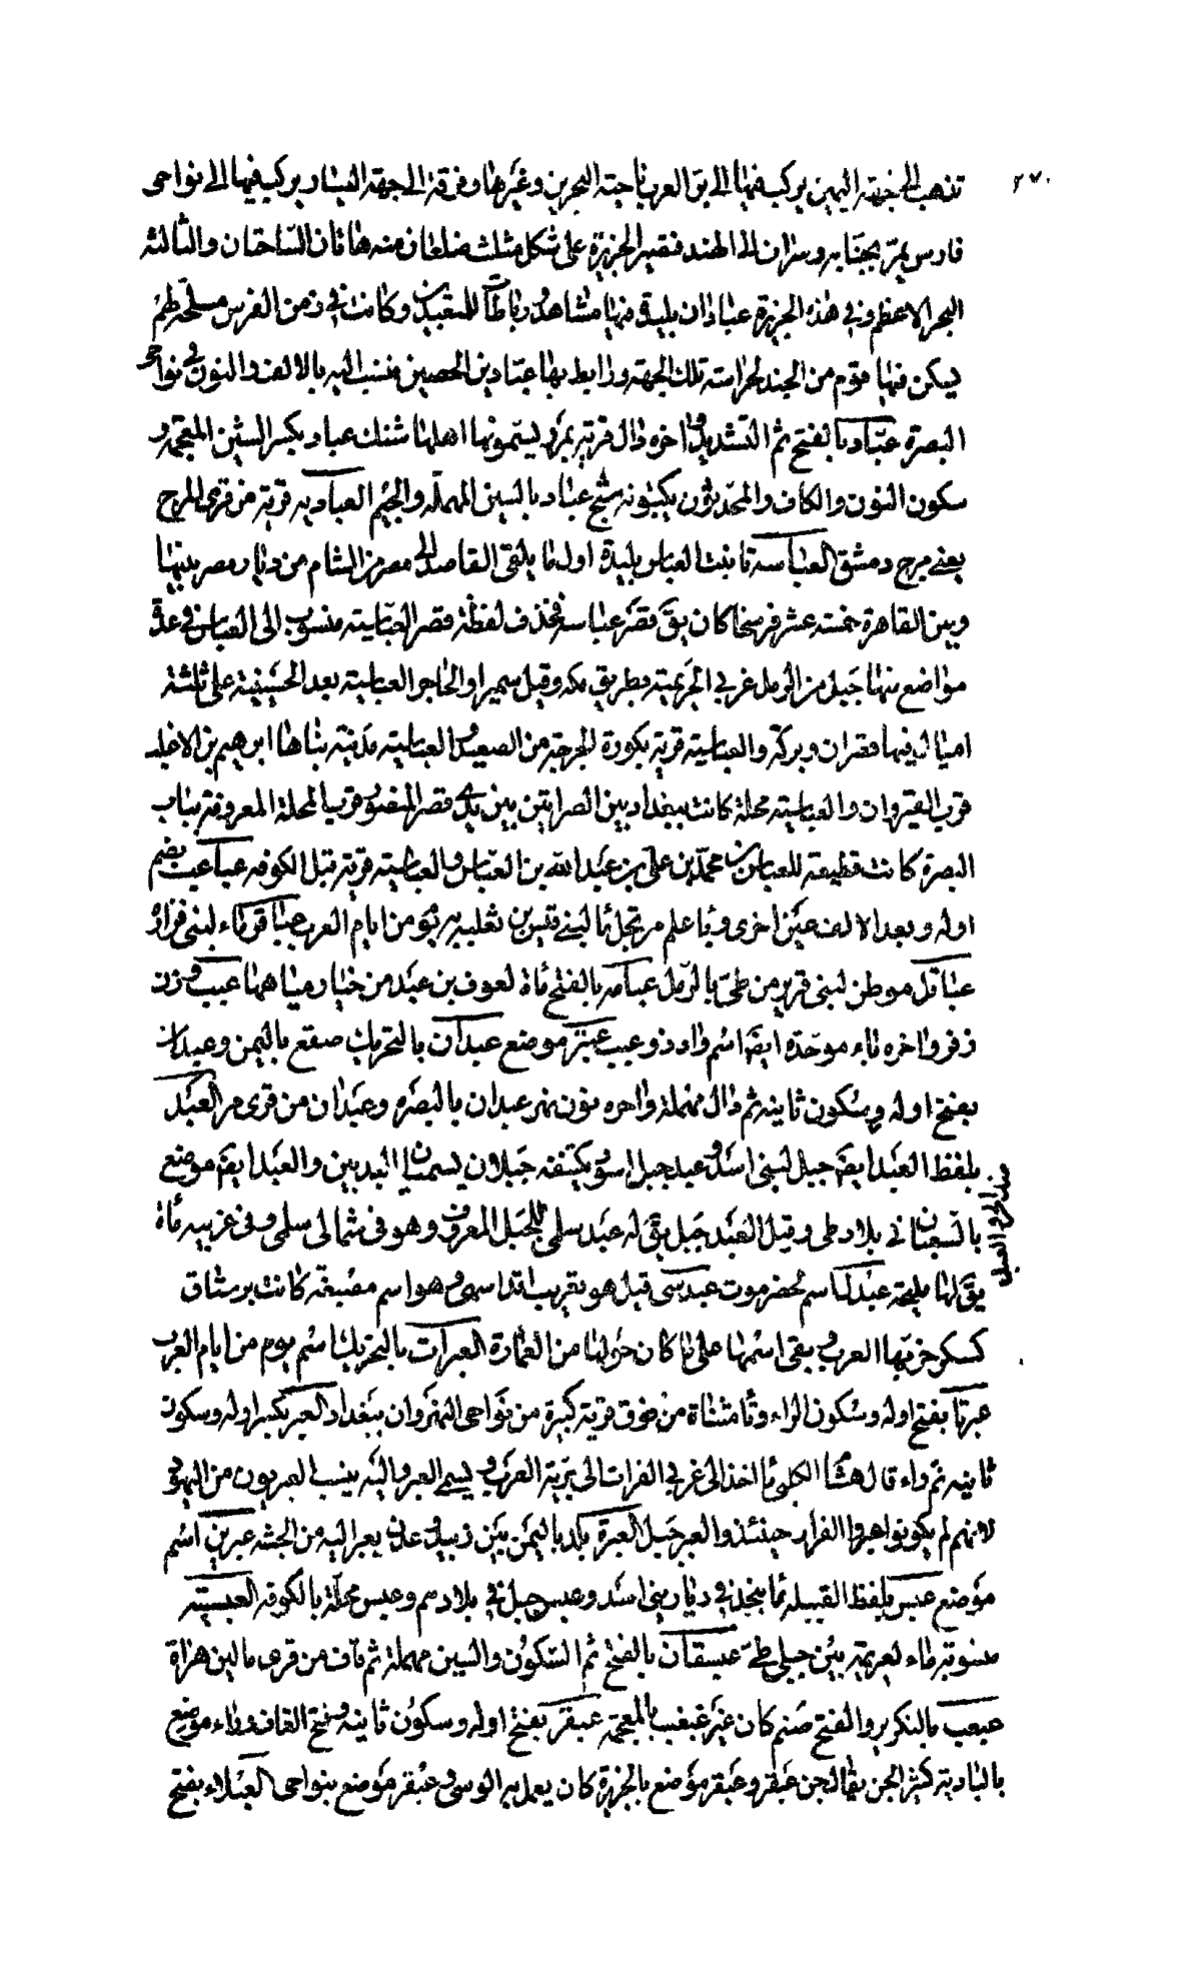 ٢٧٠
تذهب الى جهة اليمين يركب فيها الى بر العرب ناحية البحرين وغيرها وفرقة الى جهة اليسار يركب فيها الى نواحى
فارس يمر بجنابه وسيراف الى الهند فتصير الجزيرة على شكل مثلث ضلعان منه هاتان الشاحتان والثالثة
البحر الاعظم وفى هذه الجزيرة عبادان بليدة فيها مشاهد ورباطات للمتعبدين وكانت فى زمن الفرس مسلحة لهم
يسكن فيها قوم من الجند لحراسة تلك الجهة ورابط بها عباد بن الحصين فنسب اليه بالالف والنون فى نواحى
البصرة عباد بالفتح ثم التشديد واخره دال قرية بمرو يسمونها اهلها شنك عباد بكسر الشين المعجمة و
سكون النون والكاف والمحدثون يكتبونه سنج عباد بالسين المهملة والجيم العبادية قرية من قرى المرج
يعنى مرج دمشق العباسة تانيث العباس بليدة اول ما يلقى القاصد الى مصر من الشام من ديار مصر بينها
وبين القاهرة خمسة عشر فرسخا كان يق قصر عباسة فحذف لفظة قصر العباسية منسوب الى العباس فى عدة
مواضع منها جبل من الرمل غربى الخزيمية بطريق مكة وقيل سميرا والحاجر العباسية بعد الحسينية على ثلثة
اميال فيها قصران وبركة والعباسية قرية بكورة الجرجة من الصعيد والعباسية مدينة بناها ابرهيم بن الاغلب
قرب القيروان والعباسية محلة كانت ببغداد بين الصراتين بين يدى قصر المنصور قرب المحلة المعروفة بباب
البصرة كانت قطيعة للعباس بن محمد بن على بن عبد الله بن العباس والعباسية قرية قبل الكوفة عباعب بضم
اوله وبعد الالف عين اخرى وبا علم مرتجل ماء لبنى قيس بن ثعلبه يوم من ايام العرب عباقر ماء لبنى فزارة
عباقل موطن لبنى قرير من طى بالرمل عبامر بالفتح ماءة لعوف بن عبد من خيار مياهها عبب وزن
زفر واخره باء موحدة ايضا اسم واد ذو عبب عبثر موضع عبدان بالتحريك صقع باليمن وعبدان
بفتح اوله وسكون ثانيه ثم دال مهملة واخره نون نهر عبدان بالبصره وعبدان من قرى مرو العبد
بلفظ العبد ايضا جبل لبنى اسد وعبد جبل اسود يكتنفه جبلان يسميان الثديين والعبد ايضا موضع
بالسبعان فى بلاد طى وقيل العبد جبل يق له عبد سلمى للجبل المعروف وهو فى شمالى سلمى وفى غربيه ماءة
يق لها مليحة عبدل اسم لحضرموت عبدسى قيل هو تعريب افداسهى وهو اسم مصنعة كانت برستاق
كسكر خربها العرب وبقى اسمها على ما كان حولها من العمارة العبرات بالتحريك اسم يوم من ايام العرب
عبرتا بفتح اوله وسكون الراء وتا مثناة من فوق قرية كبيرة من نواحى النهروان ببغداد العبر بكسر اوله وسكون
ثانيه ثم راء قال هشام الكلبى ما اخذ الى غربى الفرات الى برية العرب يسمى العبر واليه ينسب العبريون من اليهود
لانهم لم يكونوا عبروا الفرات حينئذ والعبر جبل العبرة بلد باليمن بين زبيد وعدن يعبر اليه من الحبشه عبرين اسم
موضع عبس بلفظ القبيله ماء بنجد فى ديار بنى اسد وعبس جبل فى بلادهم وعبس محلة بالكوفه العبسية
منسوبة ماء لعريمة بين جبلى طى عبسقان بالفتح ثم السكون والسين مهملة ثم قاف من قرى مالين هراة
عبعب بالتكرير والفتح صنم كان غير غبغب بالمعجمة عبقر بفتح اوله وسكون ثانيه وفتح القاف وراء موضع
بالبادية كثير الجن يقال جن عبقر وعبقر موضع بالجزيرة كان يعمل به الوشى وعبقر موضع بنواحى العبلاء بفتح